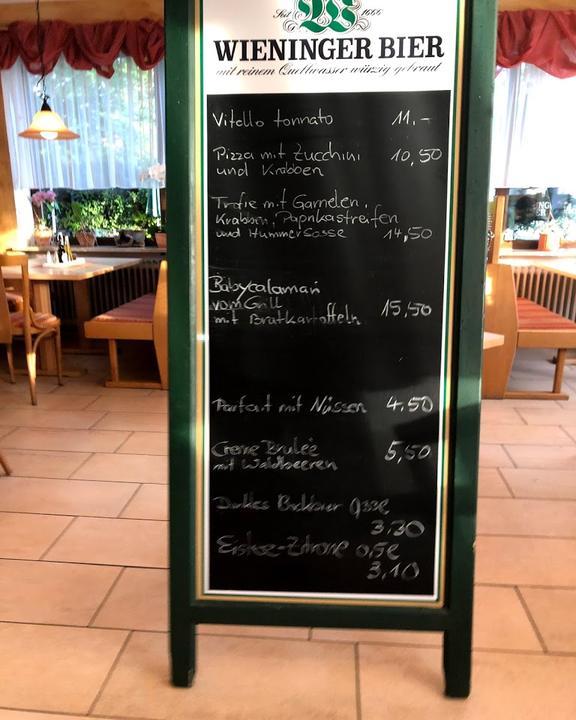 Seit 1666
W
WIENINGER BIER
mit reinem Quellwasser würzig gebraut
Vitello tonnato 11,-
Pizza mit Zucchini 10,50
und Krabben
Trofie mit Garnelen,
Krabben, Paprikastreifen
und Hummersosse 14,50
Babycalamari
vom Grill 15,50
mit Bratkartoffeln
Parfait mit Nüssen 4.50
Creme Brulée 5,50
mit Waldbeeren
Dunkles Bockbier 0,33l
3.30
Eistee-Zitrone 0,5l
3,10